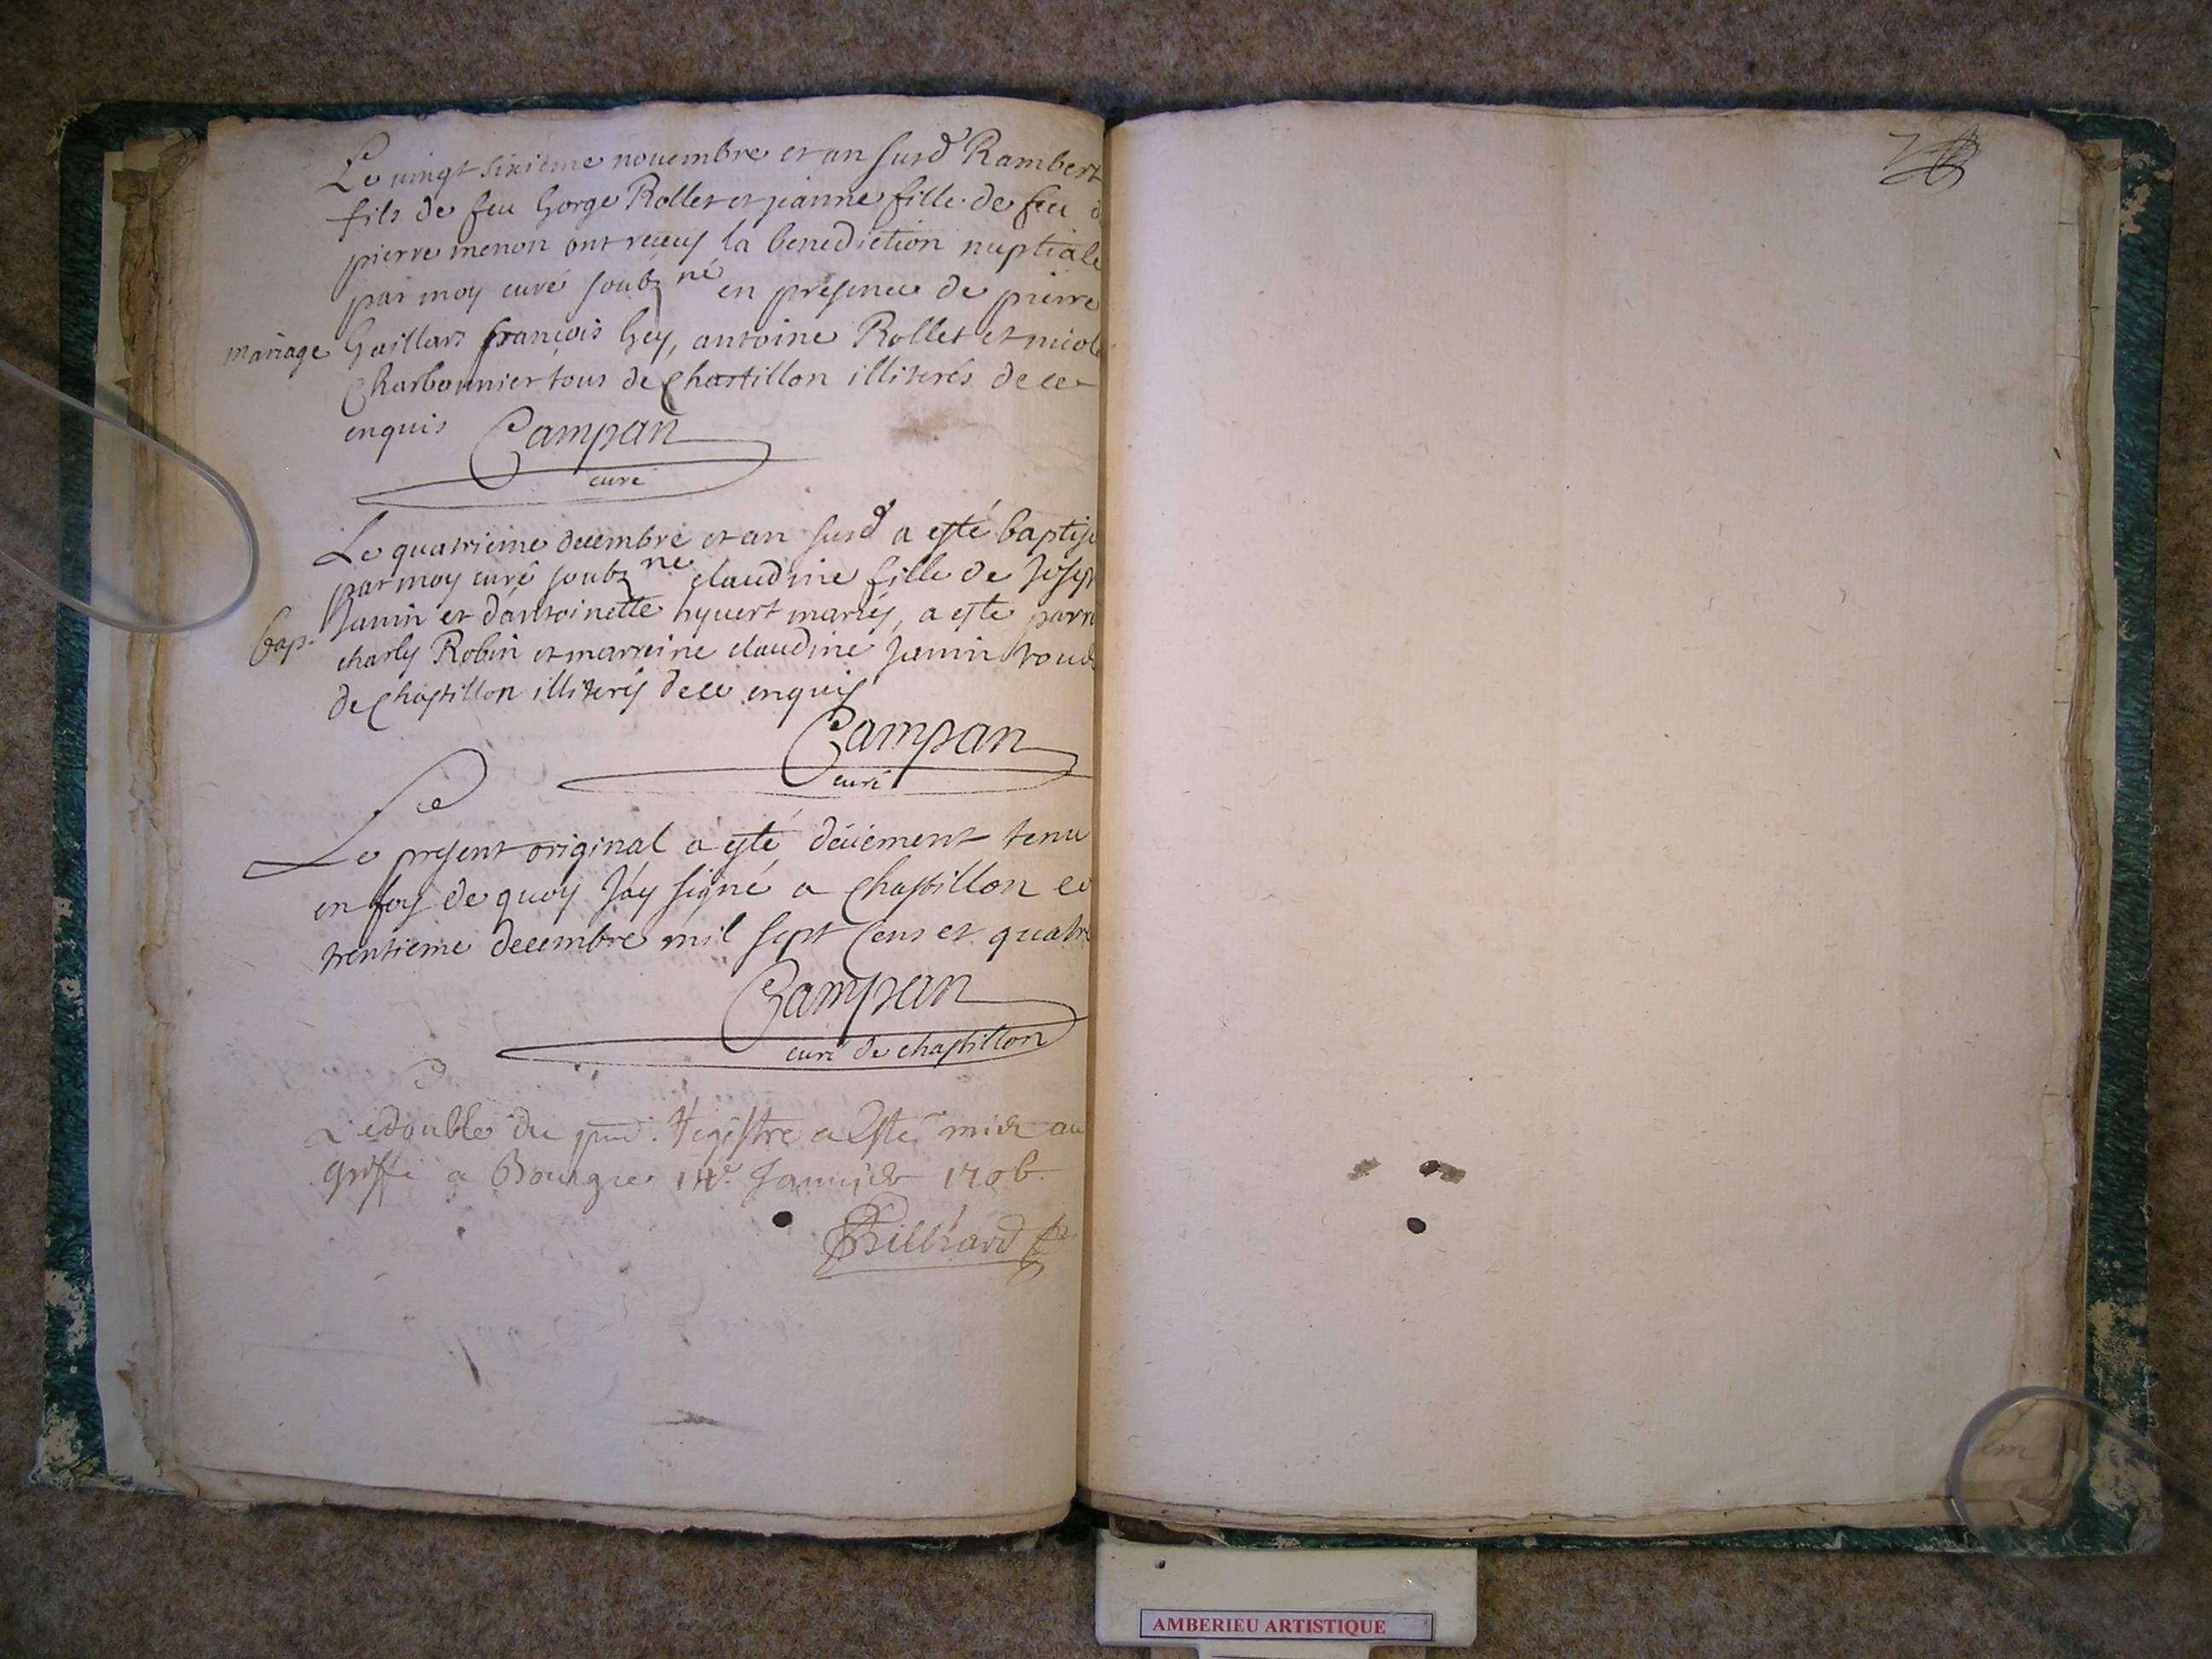 Le vingt sixieme novembre et an susd Rambert
fils de feu George Rollet et jeanne fille de feu
pierre menon ont receus la benediction nuptiale
par moy curé soubz né en presence de pierre
mariage Gaillard françois Gey, antoine Rollet et
Charbonnier tous de Chastillon illiterés de ce
enquis Campan
curé
Le quatrieme decembre et an susd a esté baptisé
par moy curé soubz né claudine fille de Joseph
bap. Janin et d'antoinette hyvert mariés, a esté
charles Robin et marreine claudine Janin tous
de Chastillon illiterés de ce enquis
Campan
curé
Le present original a esté deüement tenu
en foy de quoy J'ay signé a Chastillon le
trentieme decembre mil sept cens et quatre
Campan
curé de chastillon
Le double du pnt. Registre a Esté mis au
greffe a Bourg le 14e. Janvier 1706.
AMBERIEU ARTISTIQUE